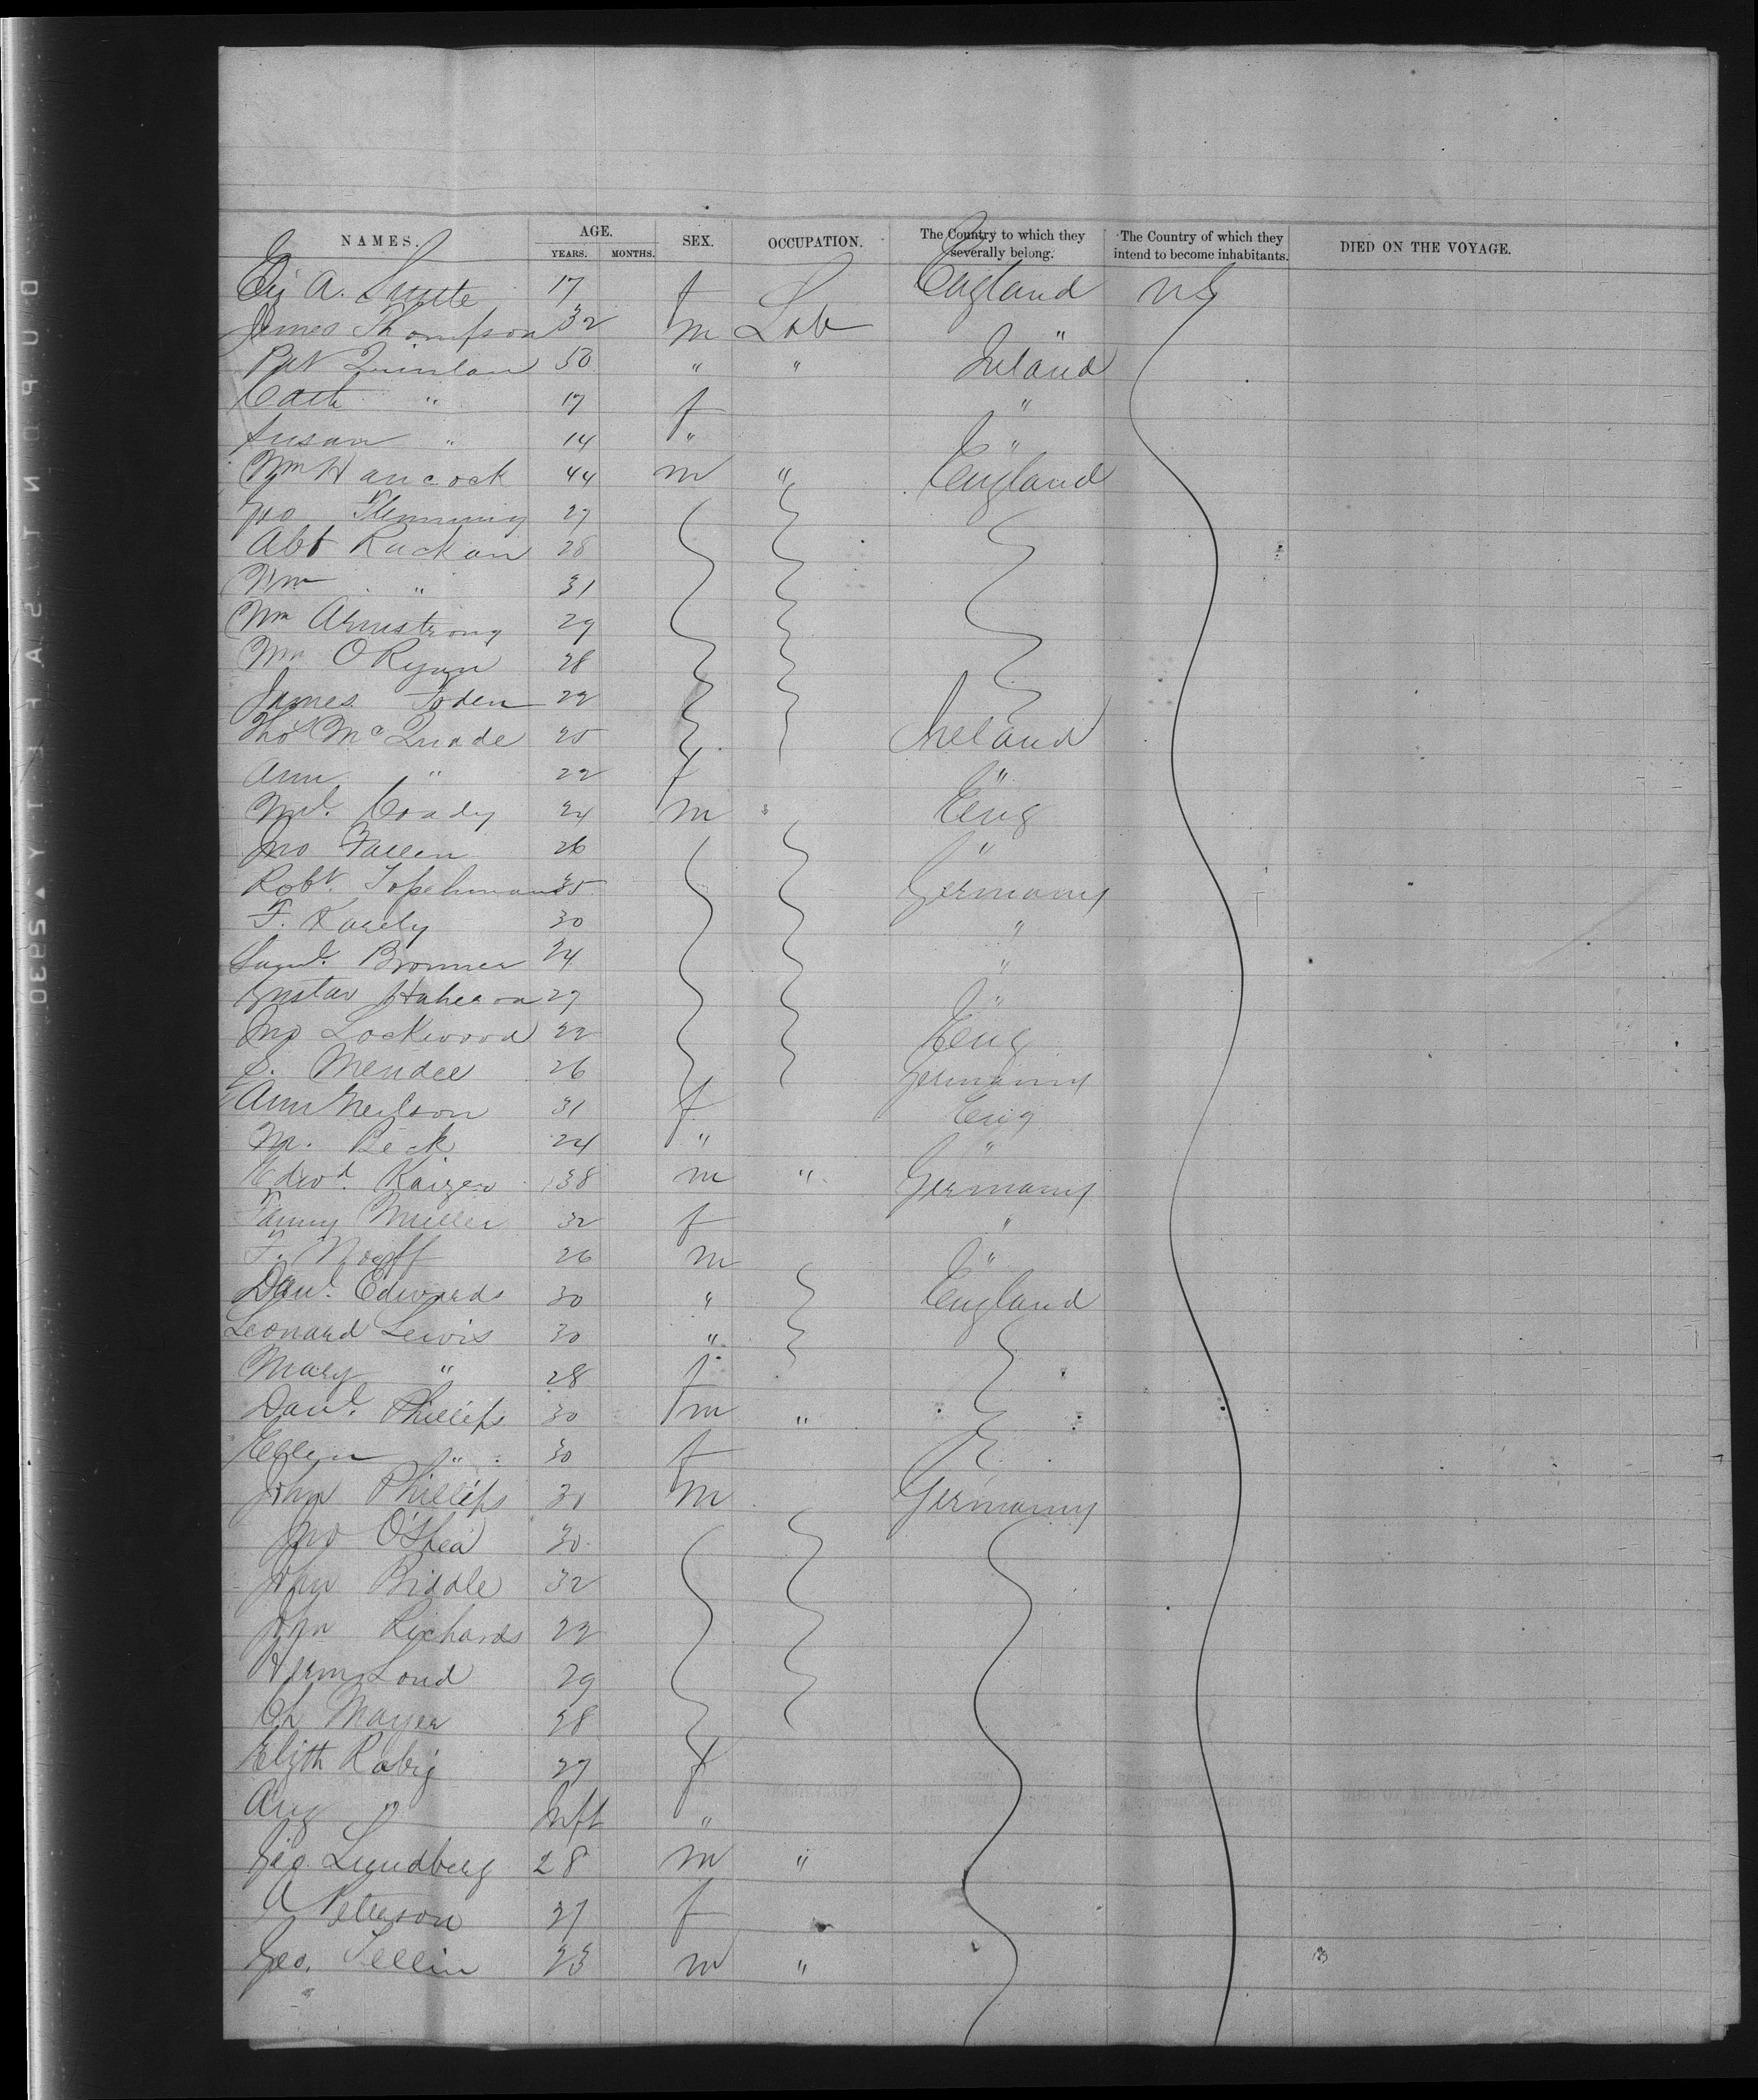 NAMES. AGE. YEARS. MONTHS. SEX. OCCUPATION. The Country to which they severally belong. The Country of which they intend to become inhabitants. DIED ON THE VOYAGE.
A. 17 f England US
James Thompson 32 m Lab "
Pat Quinlan 50 " " Ireland
Cath " 17 f "
Susan " 14 " "
Wm Hancock 44 m " England
Jno Flemming 27
Abt Rackan 28
Wm " 31
Wm Armstrong 29
Wm O Ryan 28
James Foden 22
Tho McQuade 25 Ireland
Ann " 22 f "
Ml. Coady 24 m " Eng
Jno Fallen 26 "
Robt. 35 Germany
F. 30 "
Saml. Bronner 24 "
Gustav 27 "
Jno Lockwood 22 Eng
S. Mendee 26 Germany
Ann Neilson 31 f Eng
M. Beck 24 " "
Edwd. Kaizer 38 m " Germany
Fanny Muller 32 f "
F. 26 m "
Danl. Edwards 30 " England
Leonard Lewis 30 "
Mary " 28 f
Danl. Phillips 30 m "
Ellen " 30 f
John Phillips 31 m Germany
Jno O'Shea 30
John Biddle 32
John Richards 22
Herm Lond 29
Ch Mayer 28
Elizth Rabig 27 f
Aug " Inft "
Geo. Lundberg 28 m "
A Peterson 27 f
Geo. Tellin 23 m "